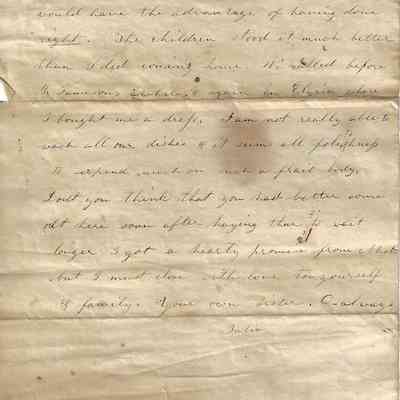 would have the advantage of having done
right. The children stood it much better
than I did coming home. We called before
& again in Elyria where
I bought me a dress, I am not really able to
wash all our dishes & it seems all
to expend much on such a frail body.
Dont you think that you had better come
out here soon after haying than to wait
longer I got a hearty promise from
but I must close with love to yourself
& family. Your own sister. C- always
Julia